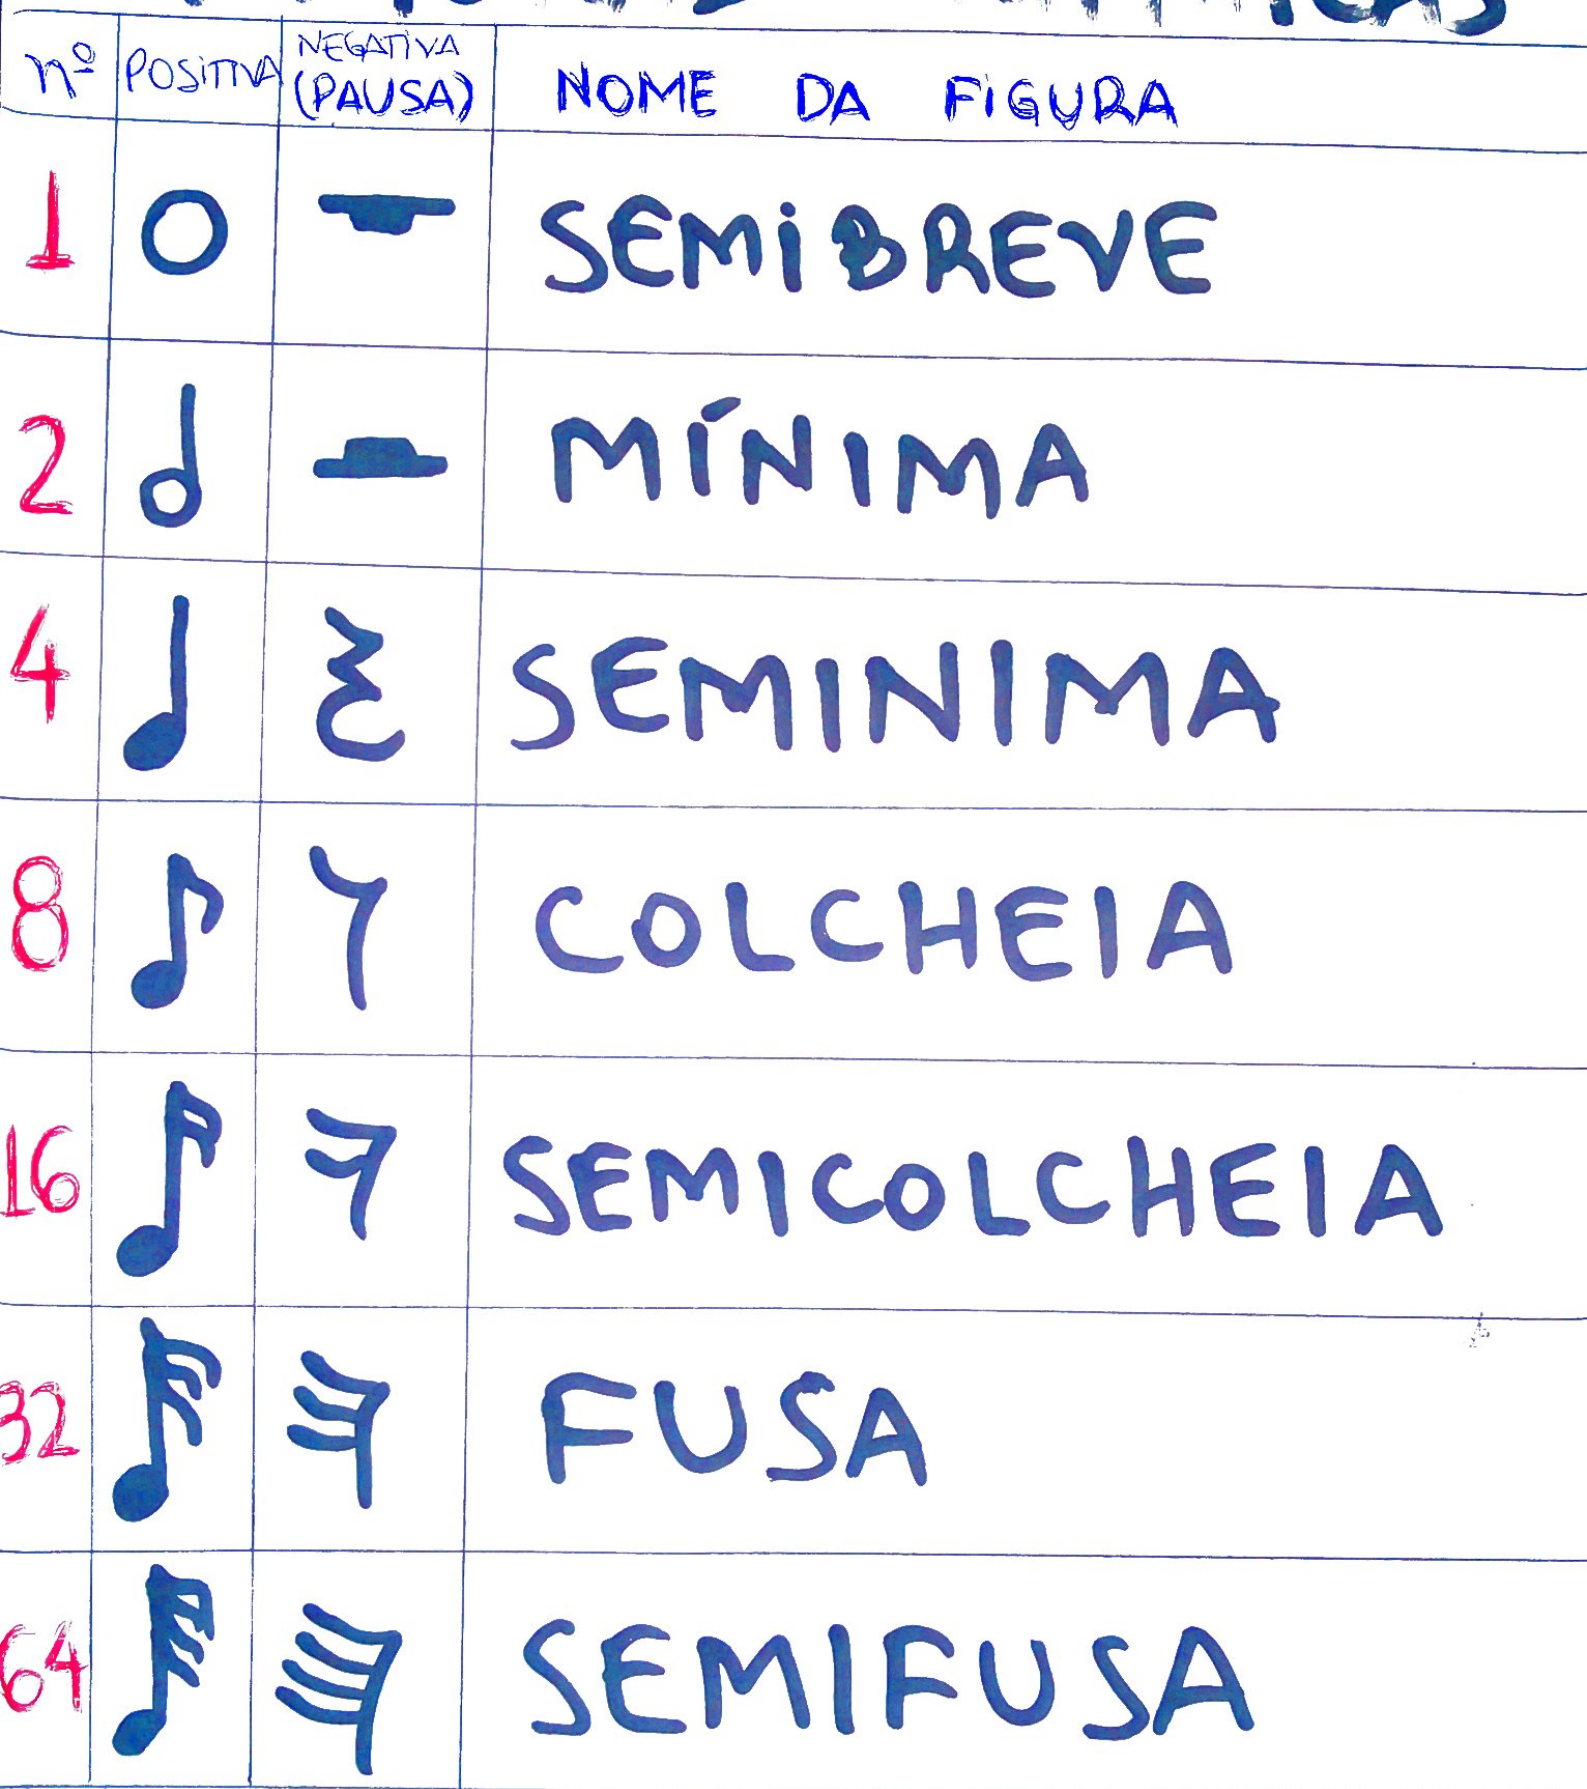 nº POSITIVA NEGATIVA (PAUSA) NOME DA FIGURA
1 SEMIBREVE
2 MÍNIMA
4 SEMINIMA
8 COLCHEIA
16 SEMICOLCHEIA
32 FUSA
64 SEMIFUSA